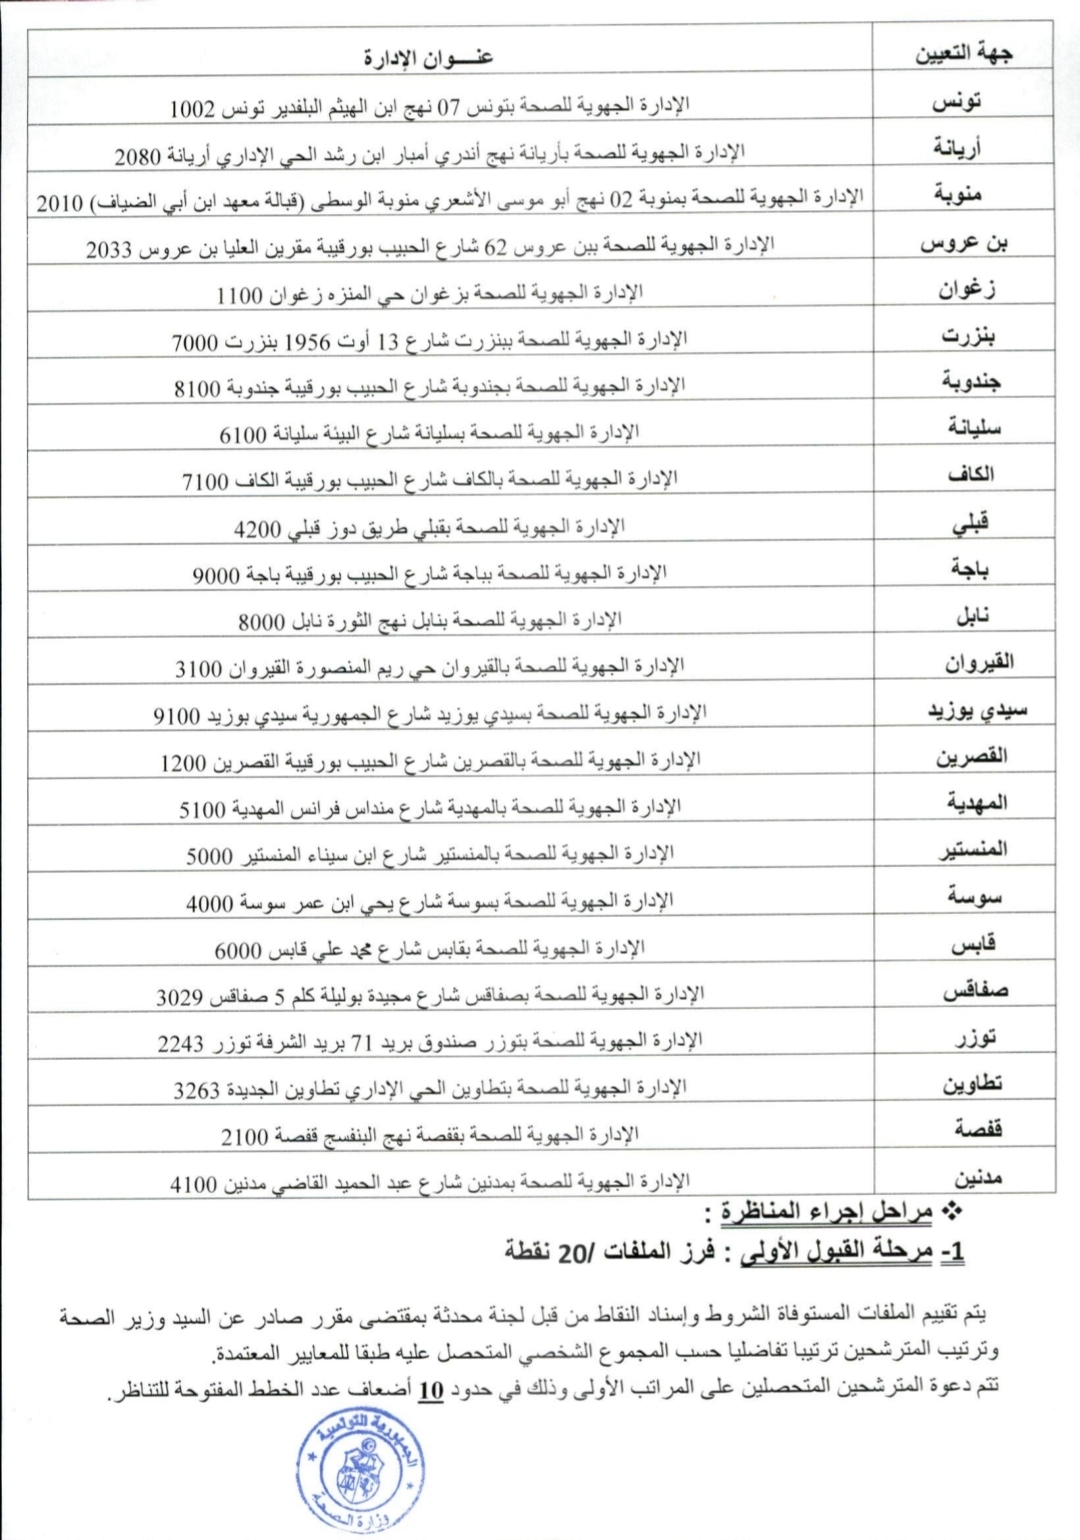 جهة التعيين عنـــوان الإدارة
تونس الإدارة الجهوية للصحة بتونس 07 نهج ابن الهيثم البلفدير تونس 1002
أريانة الإدارة الجهوية للصحة بأريانة نهج أندري أمبار ابن رشد الحي الإداري أريانة 2080
منوبة الإدارة الجهوية للصحة بمنوبة 02 نهج أبو موسى الأشعري منوبة الوسطى (قبالة معهد ابن أبي الضياف) 2010
بن عروس الإدارة الجهوية للصحة ببن عروس 62 شارع الحبيب بورقيبة مقرين العليا بن عروس 2033
زغوان الإدارة الجهوية للصحة بزغوان حي المنزه زغوان 1100
بنزرت الإدارة الجهوية للصحة ببنزرت شارع 13 أوت 1956 بنزرت 7000
جندوبة الإدارة الجهوية للصحة بجندوبة شارع الحبيب بورقيبة جندوبة 8100
سليانة الإدارة الجهوية للصحة بسليانة شارع البيئة سليانة 6100
الكاف الإدارة الجهوية للصحة بالكاف شارع الحبيب بورقيبة الكاف 7100
قبلي الإدارة الجهوية للصحة بقبلي طريق دوز قبلي 4200
باجة الإدارة الجهوية للصحة بباجة شارع الحبيب بورقيبة باجة 9000
نابل الإدارة الجهوية للصحة بنابل نهج الثورة نابل 8000
القيروان الإدارة الجهوية للصحة بالقيروان حي ريم المنصورة القيروان 3100
سيدي يوزيد الإدارة الجهوية للصحة بسيدي يوزيد شارع الجمهورية سيدي بوزيد 9100
القصرين الإدارة الجهوية للصحة بالقصرين شارع الحبيب بورقيبة القصرين 1200
المهدية الإدارة الجهوية للصحة بالمهدية شارع منداس فرانس المهدية 5100
المنستير الإدارة الجهوية للصحة بالمنستير شارع ابن سيناء المنستير 5000
سوسة الإدارة الجهوية للصحة بسوسة شارع يحي ابن عمر سوسة 4000
قابس الإدارة الجهوية للصحة بقابس شارع محمد علي قابس 6000
صفاقس الإدارة الجهوية للصحة بصفاقس شارع مجيدة بوليلة كلم 5 صفاقس 3029
توزر الإدارة الجهوية للصحة بتوزر صندوق بريد 71 بريد الشرفة توزر 2243
تطاوين الإدارة الجهوية للصحة بتطاوين الحي الإداري تطاوين الجديدة 3263
قفصة الإدارة الجهوية للصحة بقفصة نهج البنفسج قفصة 2100
مدنين الإدارة الجهوية للصحة بمدنين شارع عبد الحميد القاضي مدنين 4100
❖ مراحل إجراء المناظرة :
1- مرحلة القبول الأولى : فرز الملفات /20 نقطة
يتم تقييم الملفات المستوفاة الشروط وإسناد النقاط من قبل لجنة محدثة بمقتضى مقرر صادر عن السيد وزير الصحة
وترتيب المترشحين ترتيبا تفاضليا حسب المجموع الشخصي المتحصل عليه طبقا للمعايير المعتمدة.
تتم دعوة المترشحين المتحصلين على المراتب الأولى وذلك في حدود 10 أضعاف عدد الخطط المفتوحة للتناظر.
الجمهورية التونسية
وزارة الصحة